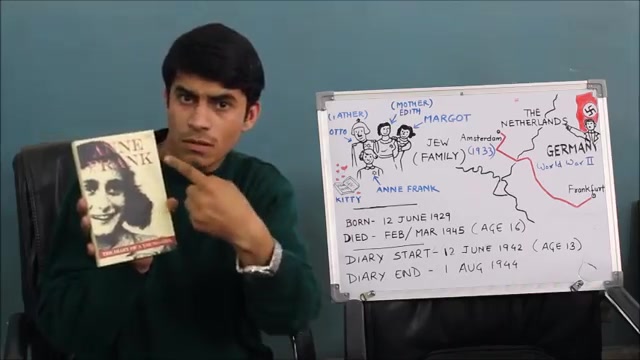 ANNE
FRANK
THE DIARY OF A YOUNG GIRL
(FATHER)
OTTO
(MOTHER)
EDITH
MARGOT
JEW
(FAMILY)
KITTY
ANNE FRANK
THE
NETHERLANDS
Amsterdam
(1933)
GERMANY
World War II
Frankfurt
BORN- 12 JUNE 1929
DIED - FEB/MAR 1945 (AGE 16)
DIARY START- 12 JUNE 1942 (AGE 13)
DIARY END - 1 AUG 1944